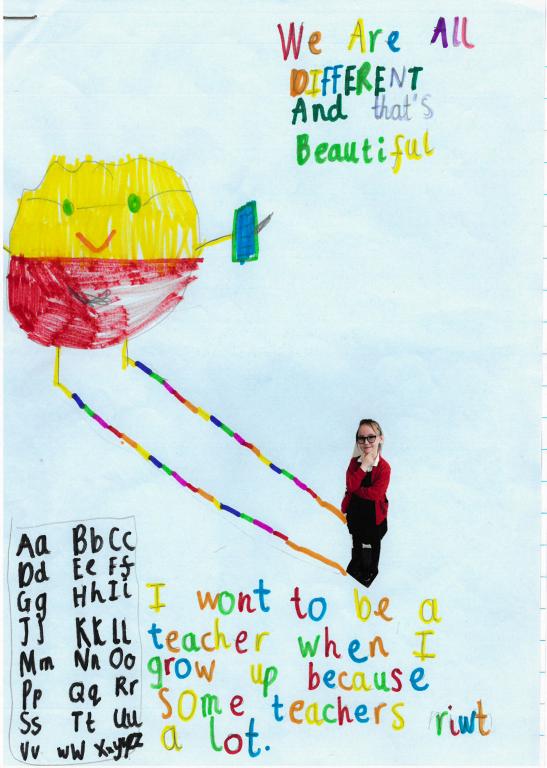 We Are All
DIFFERENT
And that's
Beautiful
Aa Bb Cc
Dd Ee Ff
Gg Hh Ii
Jj Kk Ll
Mm Nn Oo
Pp Qq Rr
Ss Tt Uu
Vv wW Xx yY zZ
I wont to be a
teacher when I
grow up because
some teachers riwt
a lot.